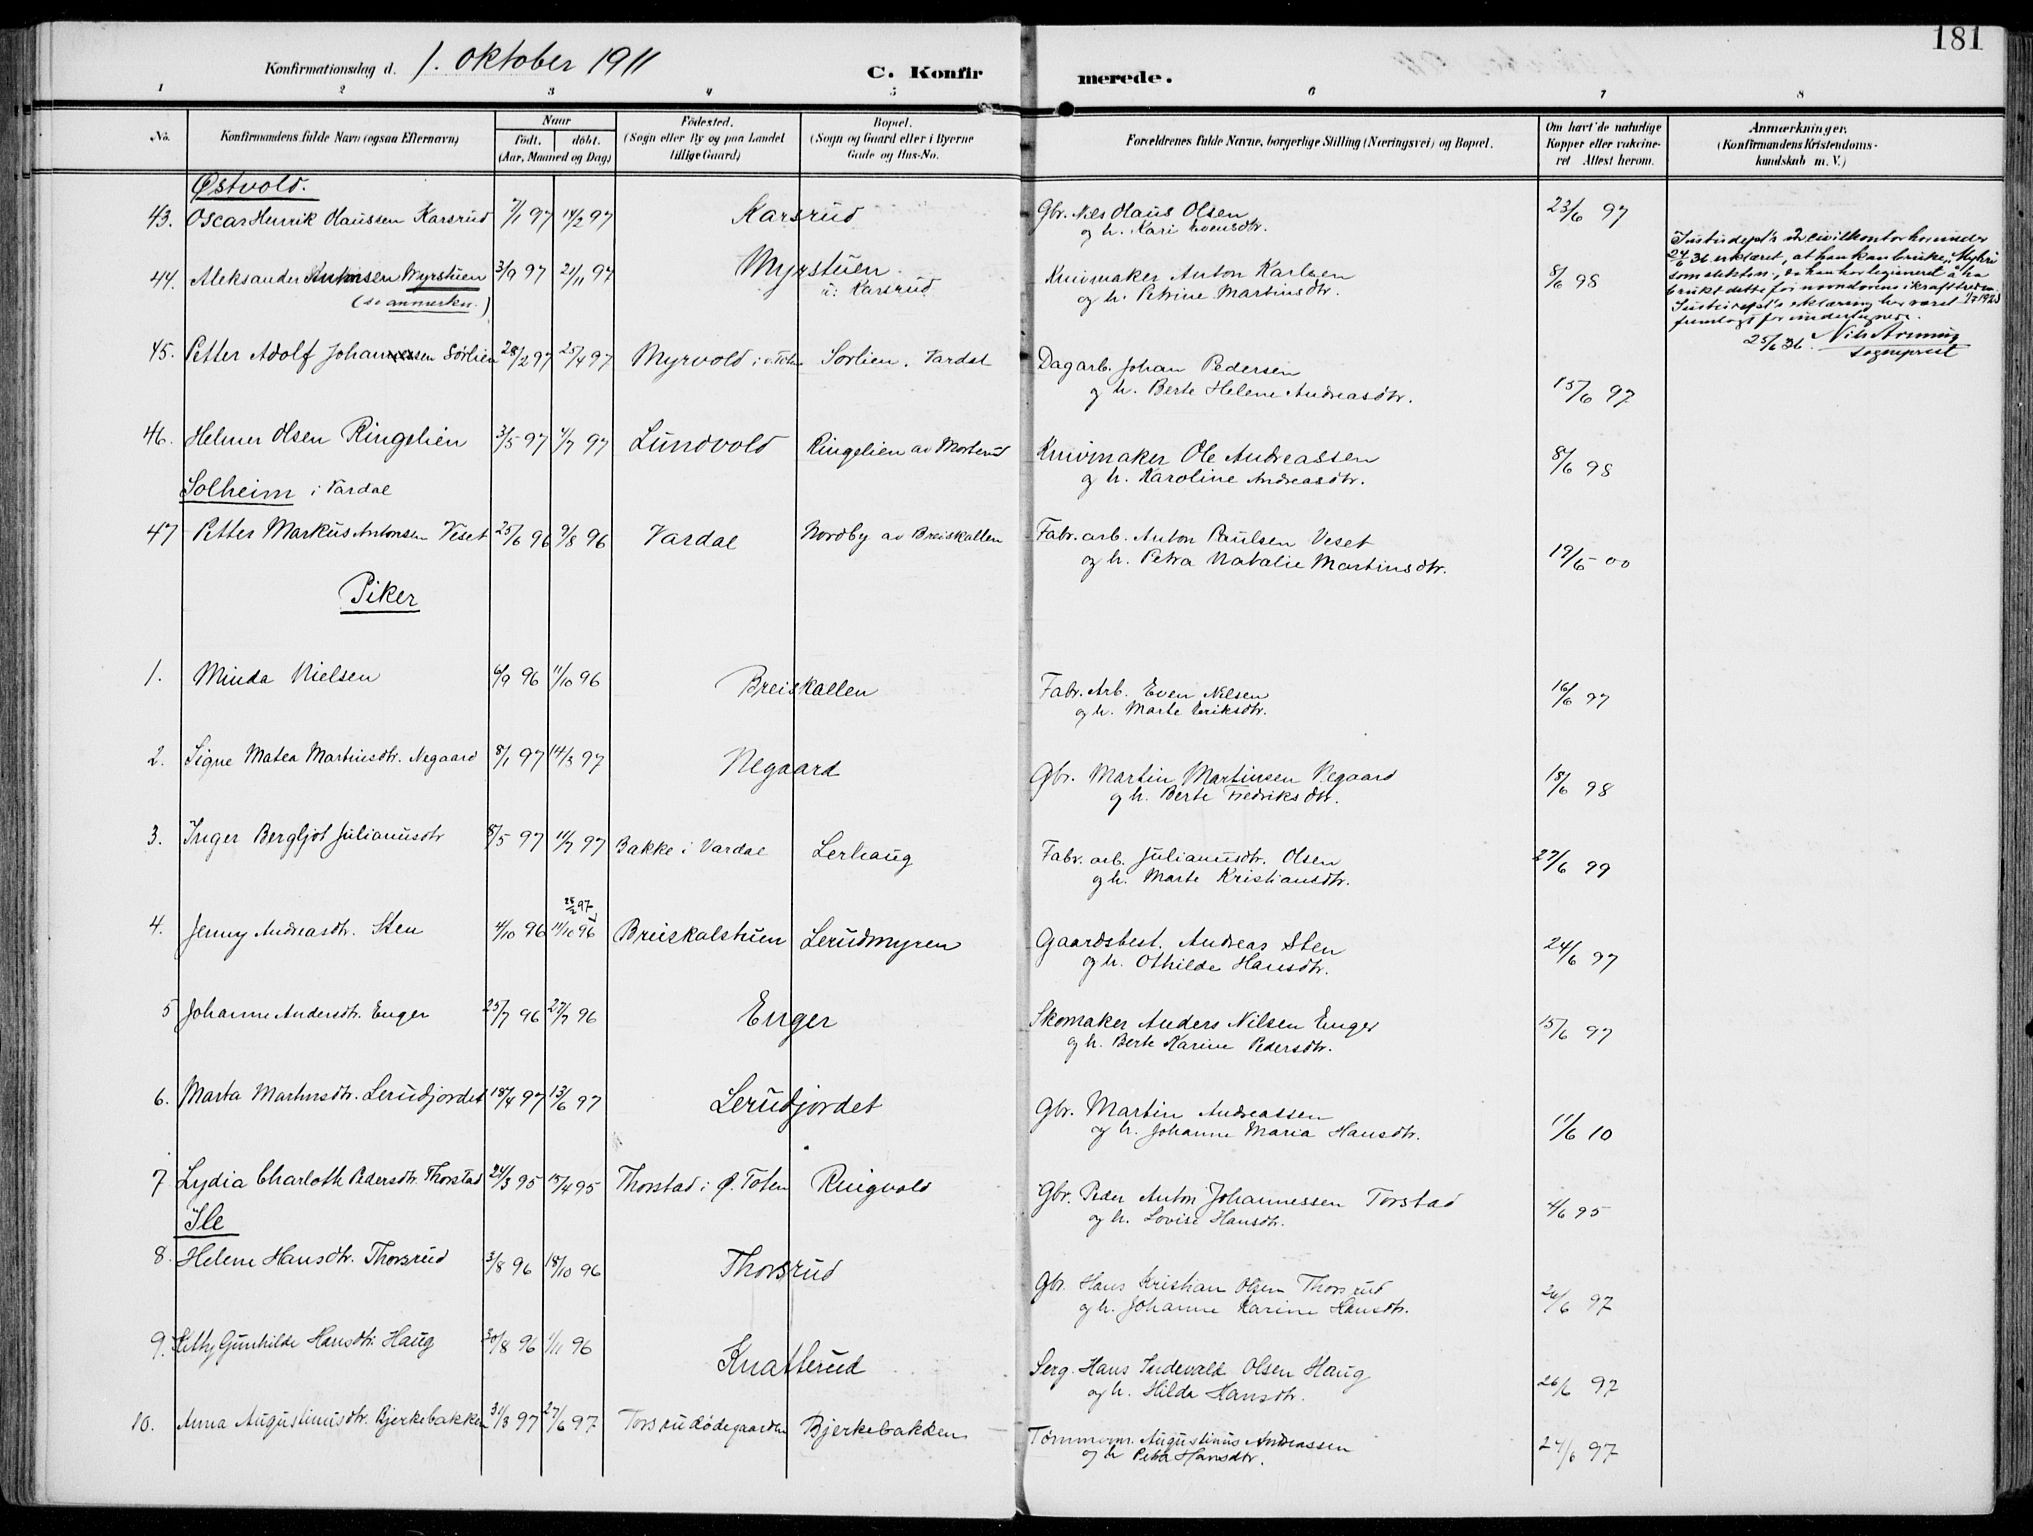 181
Konfirmationsdag d. 1. oktober 1911 C. Konfirmerede.
1 2 3 4 5 6 7 8
No. Konfirmandens fulde Navn (ogsaa Efternavn) Naar født. døbt. (Aar, Maaned og Dag) Fødested. (Sogn eller By og paa Landet tillige Gaard) Bopæl. (Sogn og Gaard eller i Byerne Gade og Hus-No. Forældrenes fulde Navne, borgerlige Stilling (Næringsvei) og Bopæl. Om havt de naturlige Kopper eller vaccineret Attest herom. Anmærkninger. (Konfirmandens Kristendomskundskab m. V.)
Østvold.
43. Oscar Henrik Olaussen Karsrud 7/1 97 14/2 97 Karsrud Gbr. Nils Olaus Olsen 23/6 97
og h. Kari Evensdtr.
44. Aleksander Antonsen Myrstuen 3/9 97 21/11 97 Myrstuen Knivmaker Anton Karlsen 8/6 98
(se anmerkn.) u: Karsrud og h. Petrine Martinsdtr.
Justisdept's 2 civilkontor har under
24/6 36 erklært, at han kan bruke "Myhri
som slektsn., da han har legimeret å ha
brukt dette før navnelovens ikrafttreden
Justisdept's erklæring har været
fremlagt for undertegnede.
25/6 36. Nils
sogneprest
45. Petter Adolf Johannessen Sørlien 28/2 97 25/4 97 Myrvold i v. Toten Sørlien. Vardal Dagarb. Johan Pedersen
og h. Berte Helene Andreasdtr. 15/6 97
46. Helmer Olsen Ringelien 3/5 97 4/7 97 Lundvold Ringelien av Morterud Knivmaker Ole Andreassen 8/6 98
og h. Karoline Andreasdtr.
Solheim i Vardal
47 Petter Markus Antonsen Veset 25/6 96 9/8 96 Vardal Nordby av Breiskallen Fabr. arb. Anton Paulsen Veset
og h. Petra Natalie Martinsdtr. 19/6 00
Piker
1. Minda Nielsen 6/9 96 11/10 96 Breiskallen Fabr. Arb. Even Nilsen 16/6 97
og h. Marte Eriksdtr.
2. Signe Matea Martinsdtr. Negaard 8/1 97 14/3 97 Negaard Gbr. Martin Martinsen Negaard 18/6 98
og h. Berte Fredriksdtr.
3. Inger Bergljot Julianusdtr 8/5 97 11/7 97 Bakke i Vardal Lerhaug Fabr. arb. Julianusdtr. Olsen 27/6 99
og h. Marte Kristiansdtr.
28/2 97
4. Jenny Andreasdtr. Sten 4/10 96 11/10 96 Breiskalstuen Lerudmyren Gaardsbest. Andreas Sten 24/6 97
og h. Othilde Hansdtr.
5 Johanne Andersdtr. Enger 25/7 96 27/7 96 Enger Skomaker Anders Nilsen Enger 15/6 97
og h. Berte Karine Pedersdtr.
6. Marta Martinsdtr. Lerudjordet 18/4 97 13/6 97 Lerudjordet Gbr. Martin Andreassen
og h. Johanne Maria Hansdtr. 11/6 10
7 Lydia Charloth Pedersdtr. Thorstad 24/3 95 15/4 95 Thorstad i Ø. Toten Ringvold Gbr. Peder Anton Johannessen Torstad 4/6 95
og h. Lovise Hansdtr.
Ile
8. Helene Hansdtr. Thorsrud 3/8 96 18/10 96 Thorsrud Gbr. Hans Kristian Olsen Thorsrud 26/6 97
og h. Johanne Karine Hansdtr.
9. Kitty Gunhilde Hansdtr. Haug 30/8 96 1/11 96 Knatterud Serg. Hans Indevald Olsen Haug 26/6 97
og h. Hilda Hansdtr.
10. Anna Augustinusdtr. Bjerkebakken 31/3 97 27/6 97 Torsrudødegaarden Bjerkebakken Tømmerm. Augustinus Andreassen 24/6 97
og h Petra Hansdtr.